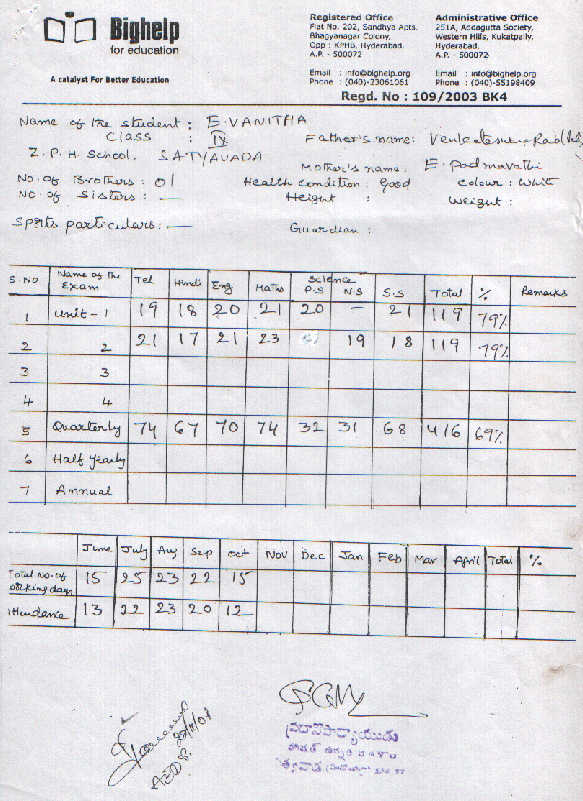 Bighelp
for education
A catalyst For Better Education
Registered Office
Flat No. 202, Sandhya Apts.
Bhagyanagar Colony,
Opp : KPHB, Hyderabad.
A.P. - 500072
Email : info@bighelp.org
Phone : (040)-23061361
Administrative Office
251A, Addagutta Society,
Western Hills, Kukatpally,
Hyderabad.
A.P. - 500072
Email : info@bighelp.org
Phone : (040)-55198409
Regd. No : 109/2003 BK4
Name of the student : E. VANITHA
Class : IV Father's name:
Z. P. H School. SATYAVADA Mother's name : E. Padmavathi
No. of Brothers : 01 Health condition : Good Colour : White
No. of Sisters : — Height : Weight :
Sports particulars : — Guardian :
S. No Name of the Exam Tel Hindi Eng Maths Science P.S N.S S.S Total % Remarks
1 Unit - 1 19 18 20 21 20 – 21 119 79%
2 2 21 17 21 23 19 18 119 79%
3 3
4 4
5 Quarterly 74 67 70 74 32 31 68 416 69%
6 Half Yearly
7 Annual
June July Aug Sep Oct Nov Dec Jan Feb Mar April Total %
Total No. of working days 15 25 23 22 15
Attendence 13 22 23 20 12